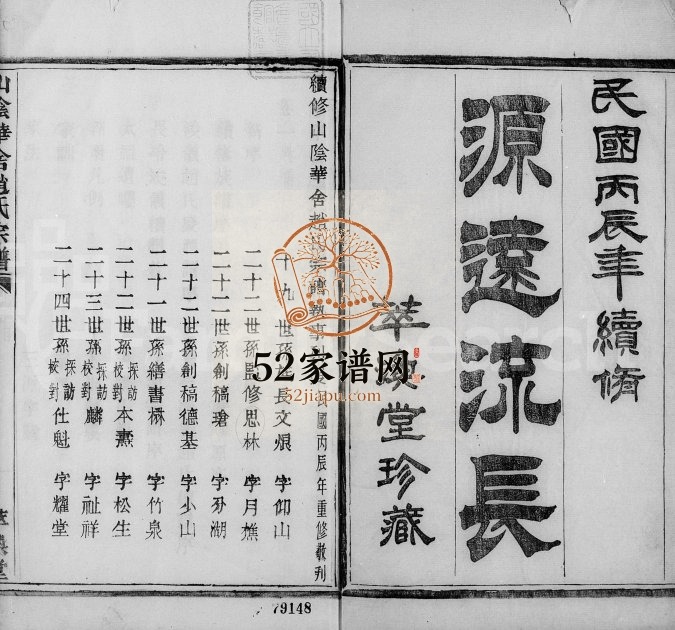 民國丙辰年續脩
源遠流長
萃堂珍藏
續修山陰華舍趙
民國丙辰年重修敬刊
十九世孫長文烺 字仰山
二十二世孫監修思林 字月樵
二十二世孫創稿瑲
二十二世孫創稿德基 字少山
二十一世孫繕書楙 字竹泉
二十二世孫採訪校對本燾 字松生
二十三世孫採訪校對麟 字祉祥
二十四世孫採訪校對仕魁 字耀堂
山陰華舍趙氏宗譜
52家谱网
52jiapu.com
79148